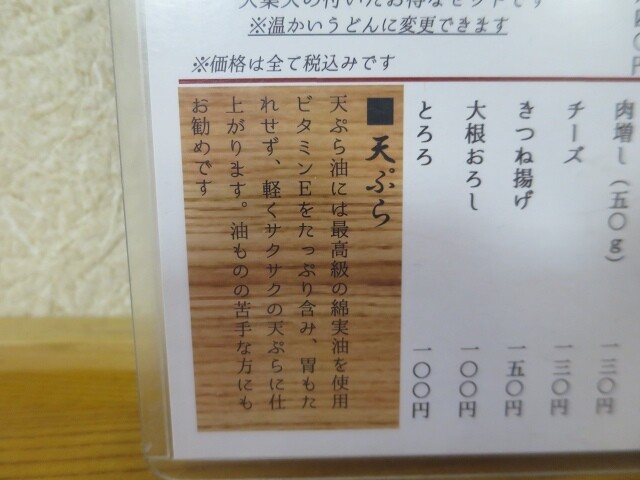 ※温かいうどんに変更できます
※価格は全て税込みです
肉増し（五〇g） 一三〇円
チーズ 一三〇円
きつね揚げ 一五〇円
大根おろし 一〇〇円
とろろ 一〇〇円
■天ぷら
天ぷら油には最高級の綿実油を使用
ビタミンEをたっぷり含み、胃もた
れせず、軽くサクサクの天ぷらに仕
上がります。油ものの苦手な方にも
お勧めです